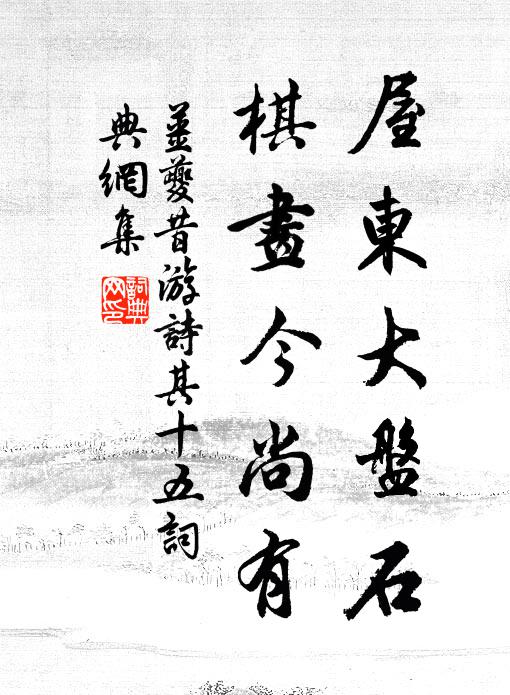 屋東大盤石
棋畫今尚有
姜夔昔游詩其十五詞
典網集
詞典
网印